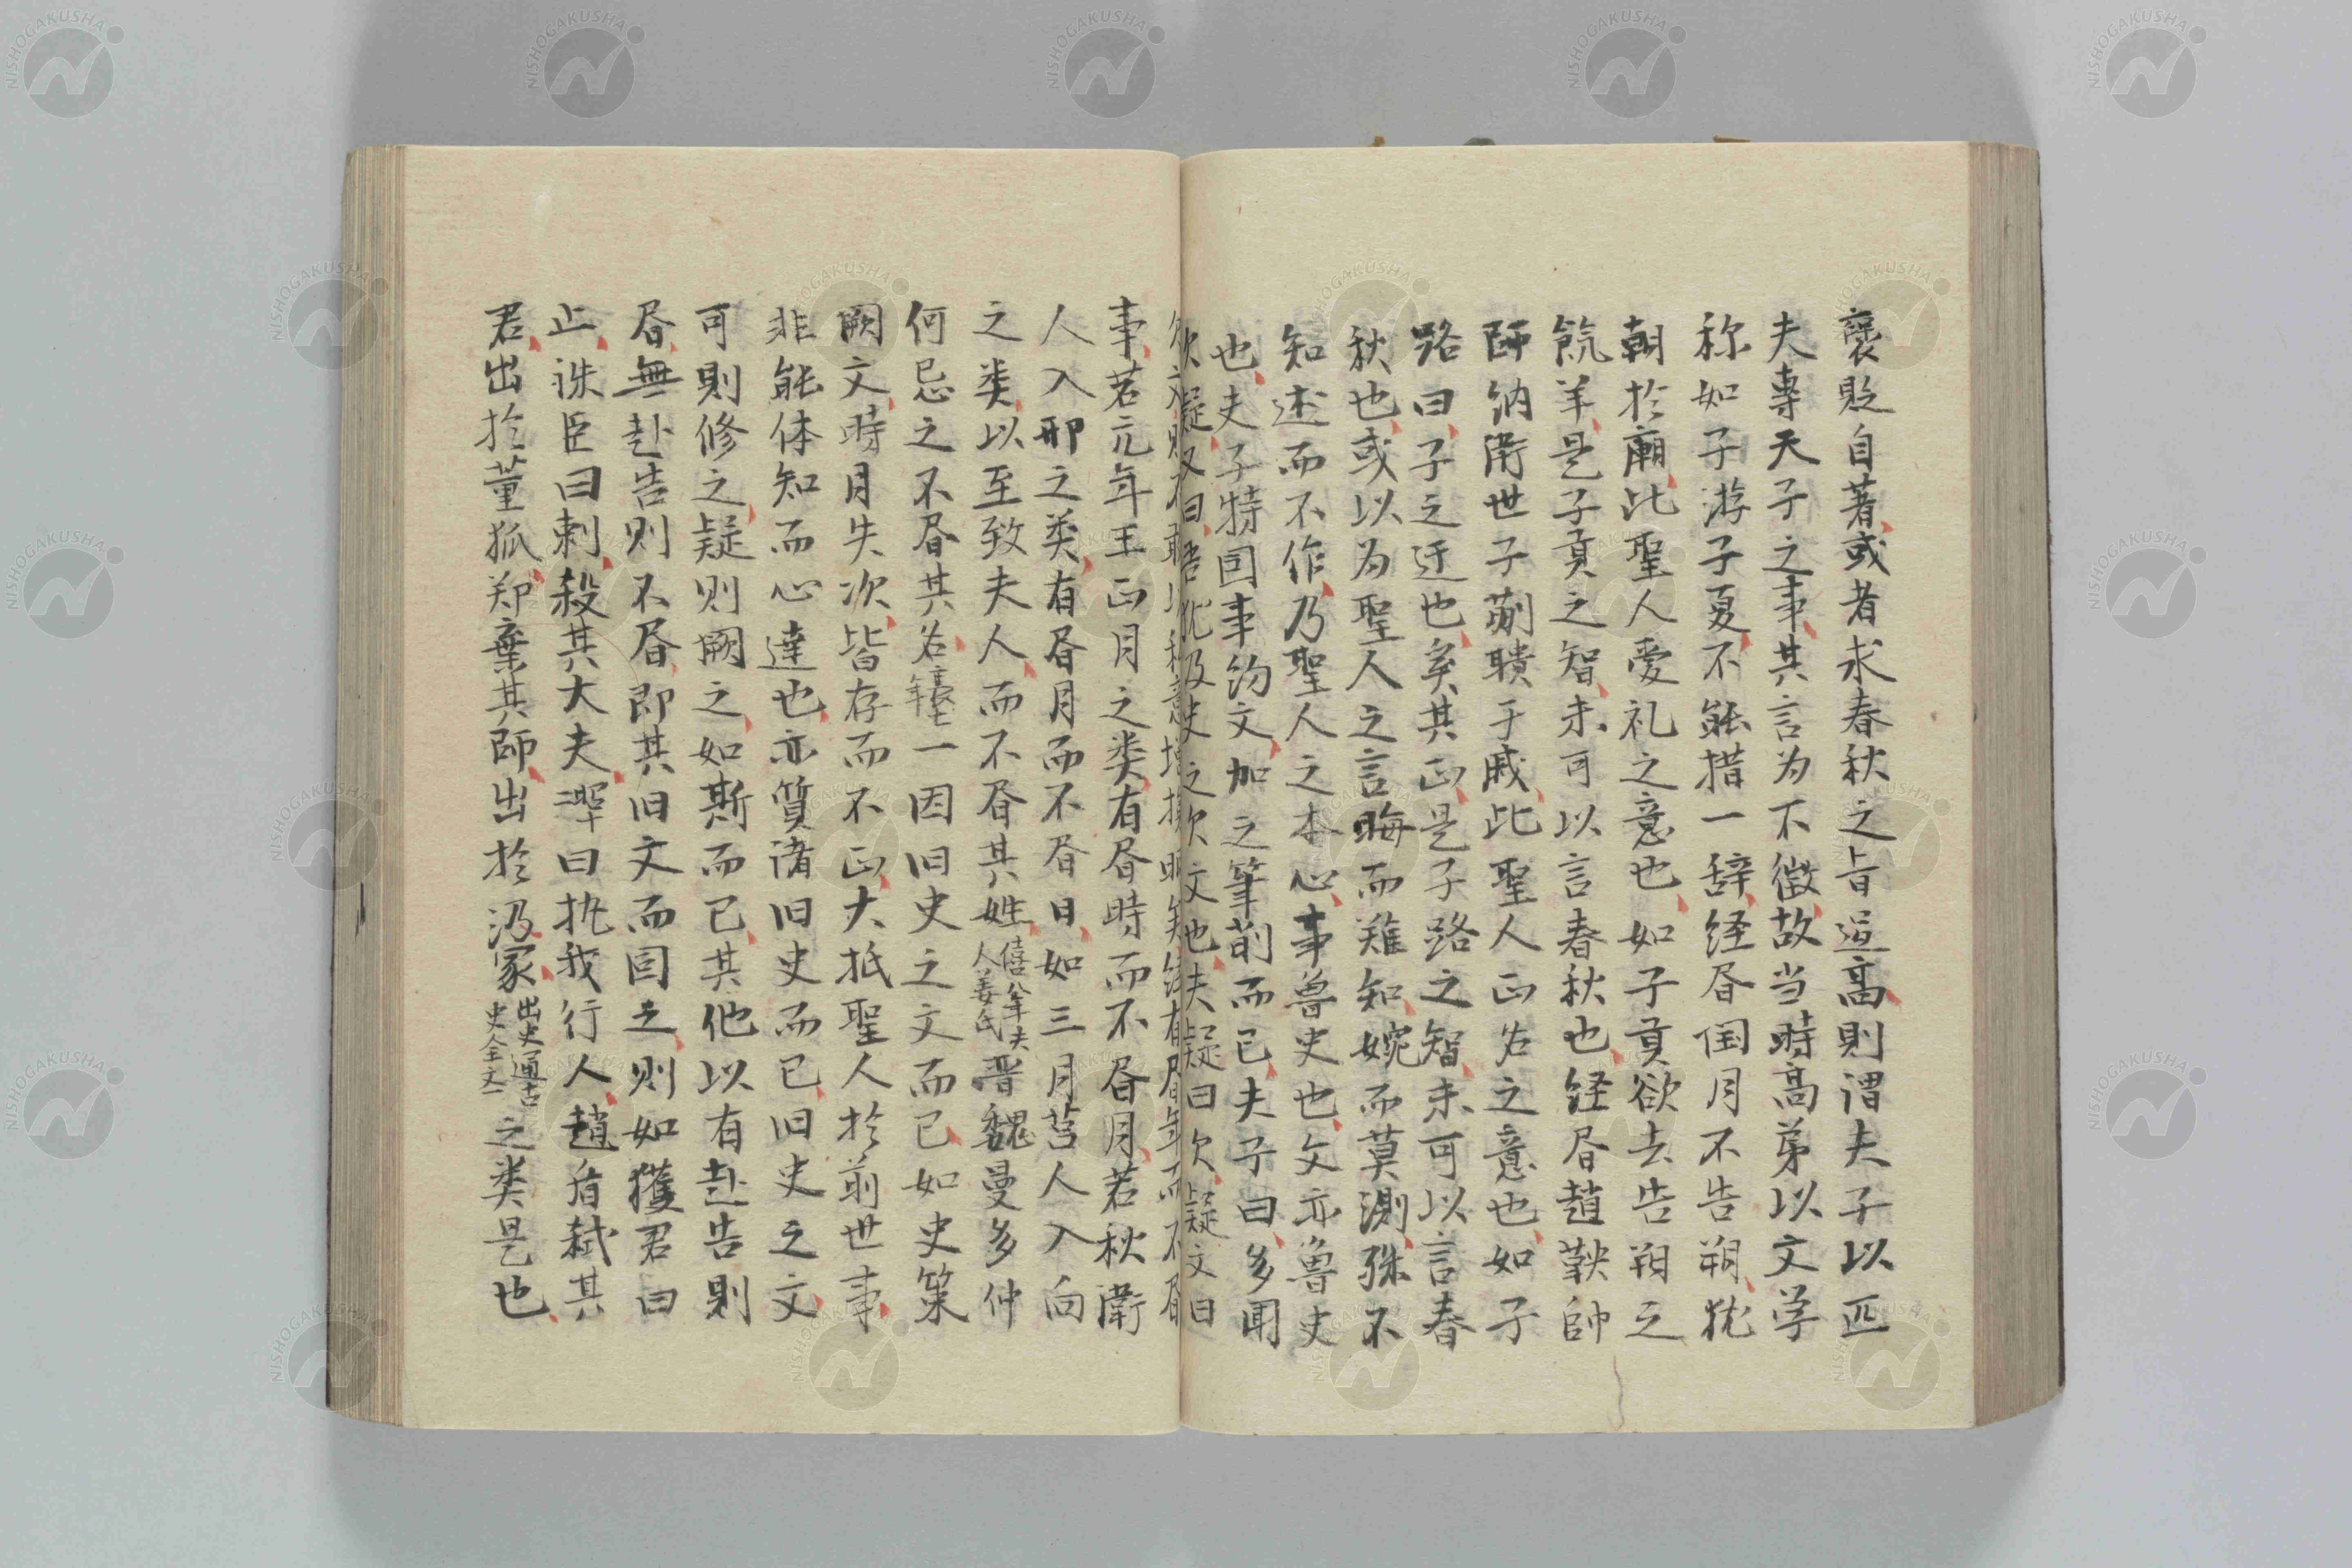 褒貶自著或者求春秋之旨過高則謂夫子以匹
夫專天子之事其言为不徵故当時高第以文学
称如子游子夏不能措一辞経昏閏月不告朔犹
朝於廟此聖人愛礼之意也如子貢欲去告朔之
餼羊是子貢之智未可以言春秋也経昏趙鞅帥
師納衛世子蒯聵于戚此聖人正名之意也如子
路曰子之迂也奚其正是子路之智未可以言春
秋也或以为聖人之言晦而難知婉而莫測殊不
知述而不作乃聖人之本心事魯史也文亦魯史
也夫子特因事約文加之筆削而已夫子曰多聞
欠疑又曰吾犹及史之欠文也夫疑曰欠疑文曰
事若元年王正月之类有昏時而不昏月若秋衛
人入邢之类有昏月而不昏日如三月莒人入向
之类以至致夫人而不昏其姓
人姜氏
晋魏曼多仲
何忌之不昏其名
一因旧史之文而已如史策
闕文時月失次皆存而不正大抵聖人於前世事
非能体知而心達也亦質诸旧史而已旧史之文
可則修之疑则闕之如斯而已其他以有赴告則
昏無赴告则不昏即其旧文而因之则如獲君曰
止诛臣曰刺殺其大夫
曰执我行人趙盾弑其
君出於董狐郑棄其師出於汲冢
出史通古
史全文
之类是也